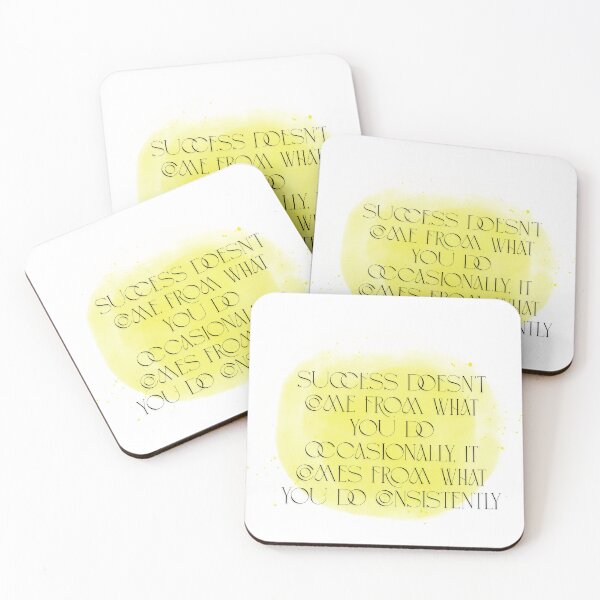 SUCCESS DOESN'T
COME FROM WHAT
DO
SUCCESS DOESN'T
COME FROM WHAT
YOU DO
OCCASIONALLY, IT
COMES FROM WHAT
SUCCESS DOESN'T
COME FROM WHAT
YOU DO
COMES FROM
YOU DO
SUCCESS DOESN'T
COME FROM WHAT
YOU DO
OCCASIONALLY, IT
COMES FROM WHAT
YOU DO CONSISTENTLY